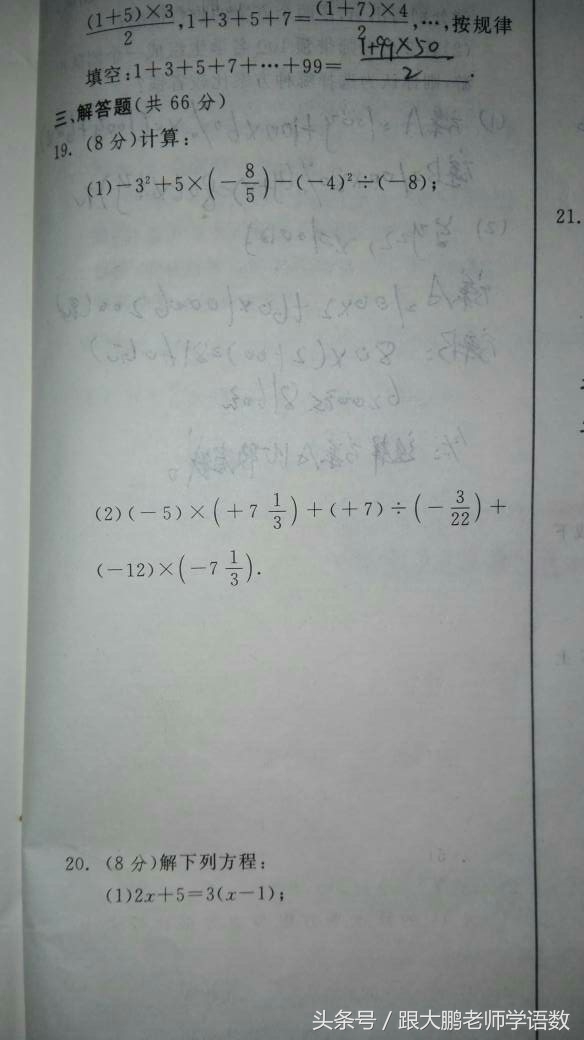 (1+5)×3/2, 1+3+5+7=(1+7)×4/2, …, 按规律
填空:1+3+5+7+…+99= (1+99)×50/2 .
三、解答题(共 66 分)
19. (8 分)计算:
(1)-3²+5×(-8/5)-(-4)²÷(-8);
21.
(2)(-5)×(+7 1/3)+(+7)÷(-3/22)+
(-12)×(-7 1/3).
20. (8 分)解下列方程:
(1)2x+5=3(x-1);
头条号 / 跟大鹏老师学语数